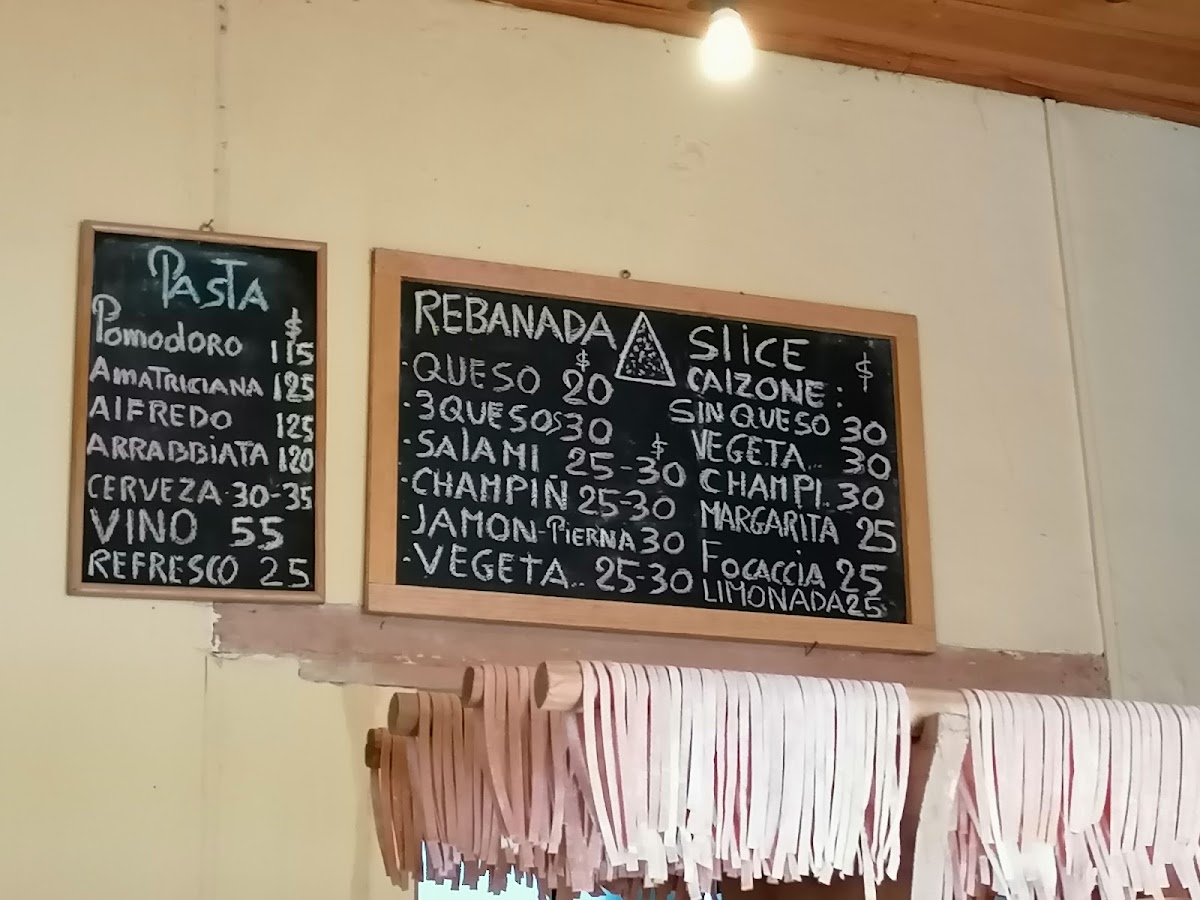 PASTA
$
Pomodoro 115
AMATRICIANA 125
AlFREDO 125
ARRABBIATA 120
CERVEZA-30-35
VINO 55
REFRESCO 25
REBANADA
$
·QUESO 20
·3QUESOS 30
$
·SALAMI 25-30
·CHAMPIÑ 25-30
·JAMON-PIERNA 30
·VEGETA.. 25-30
SliCE
$
CAlZONE:
SIN QUESO 30
VEGETA... 30
CHAMPI.. 30
MARGARITA 25
FOCACCIA 25
LIMONADA 25